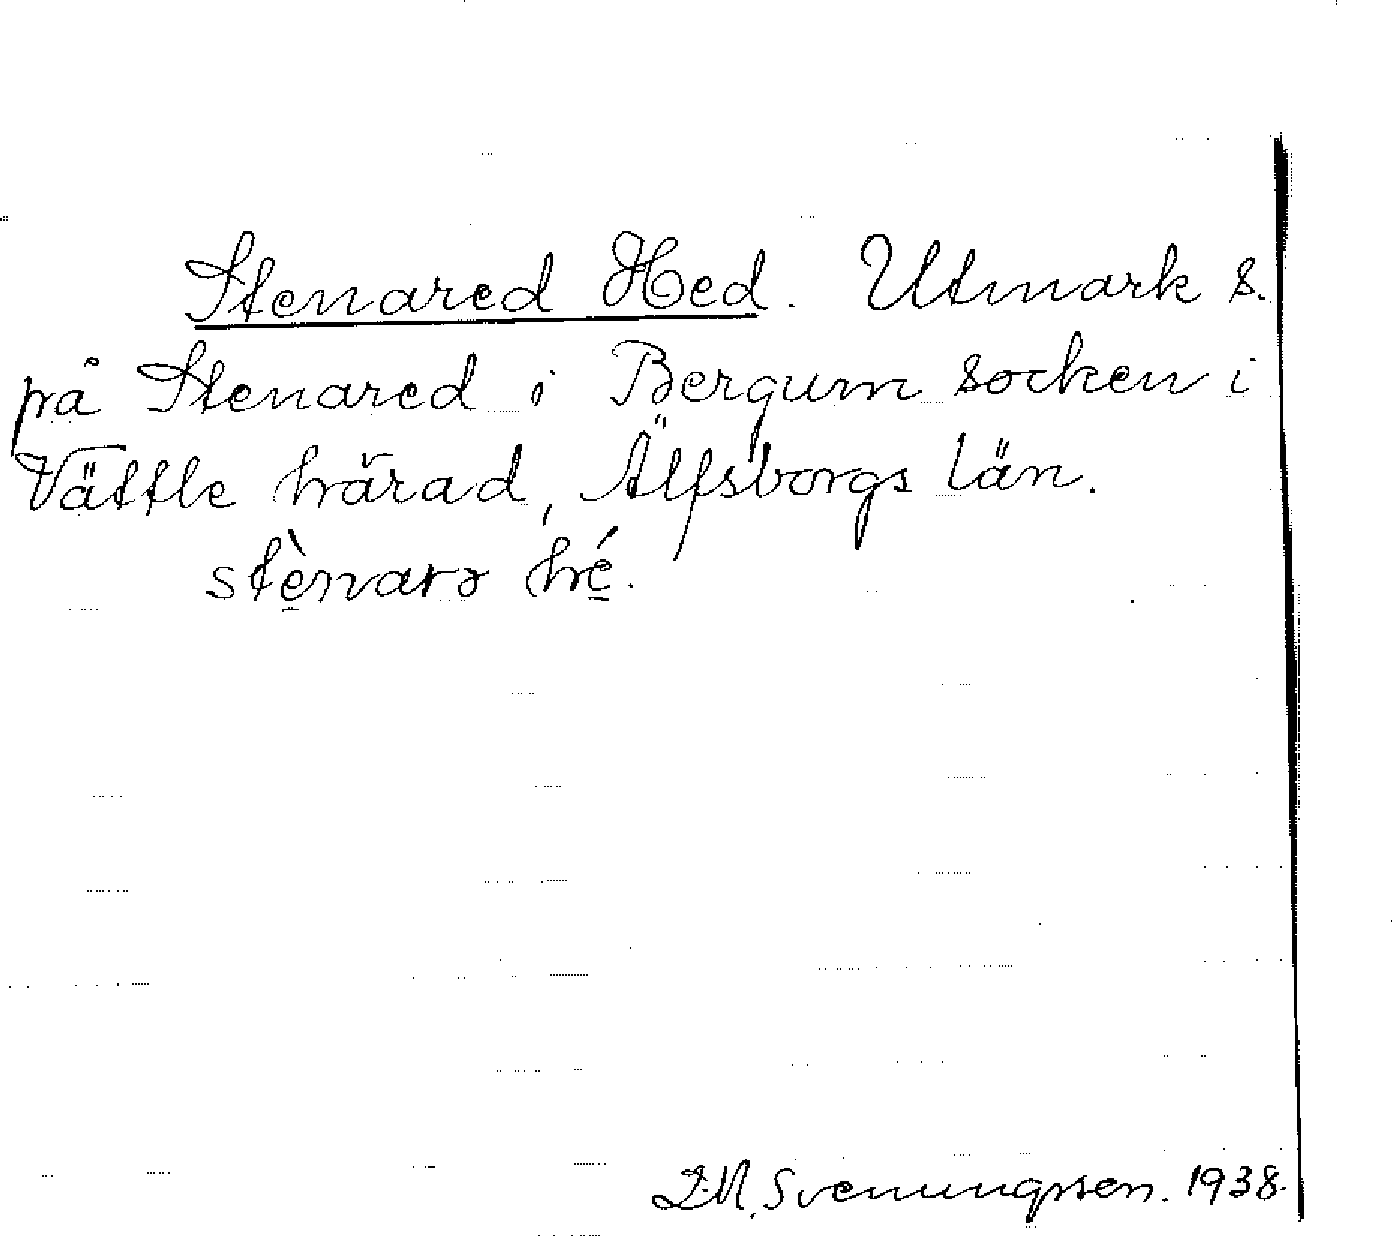 Stenared Hed. Utmark s.
på Stenared i Bergum socken i
Vättle härad, Älfsborgs län.
stènarə hé.
D.N. Svenungsson. 1938.